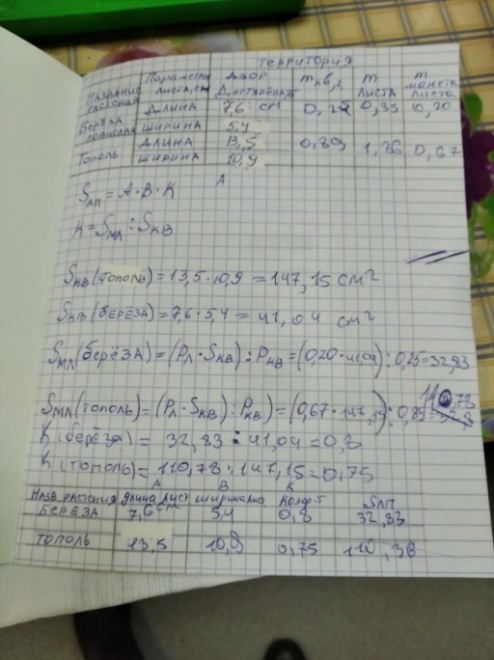 ТЕРРИТОРИЯ
НАЗВАНИЕ РАСТЕНИЯ ПАРАМЕТРЫ ЛИСТА, СМ ДВОР m КВ, г m ЛИСТА m МАКЕТА ЛИСТА
БЕРЁЗА ДЛИНА 7,6 СМ 0,35 0,20
ШИРИНА 5,4
ТОПОЛЬ ДЛИНА 13,5 0,89 1,26 0,67
ШИРИНА 10,9
Sлп = А·В·К
К = Sмл : Sкв
Sкв (ТОПОЛЬ) = 13,5·10,9 = 147,15 см²
Sкв (БЕРЁЗА) = 7,6·5,4 = 41,04 см²
Sмл (берёЗА) = (Рл·Sкв) : Ркв = (0,20·41,04) : 0,25 = 32,83
Sмл (ТОПОЛЬ) = (Рл·Sкв) : Ркв) = (0,67·147,15) : 0,89 =
К (берёЗА) = 32,83 : 41,04 = 0,8
К (ТОПОЛЬ) = 110,78 : 147,15 = 0,75
А В К
НАЗВ. РАСТЕНИЯ ДЛИНА ЛИСТ Коэф-т Sлп
БЕРЁЗА 7,6 см 5,4 0,8 32,83
ТОПОЛЬ 13,5 10,9 0,75 110,36